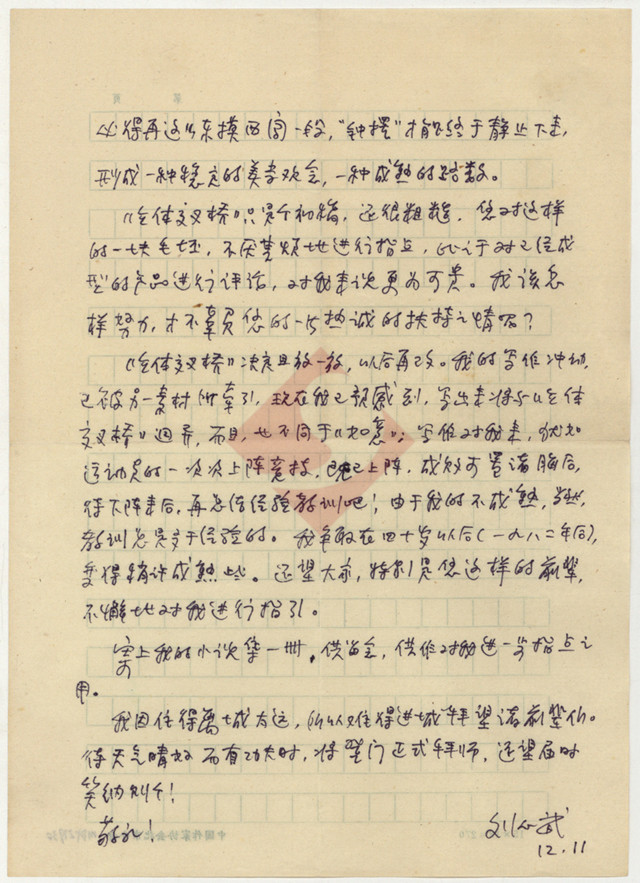 必得再这么东摸西窜一段，“钟摆”才能终于静止下来，
形成一种稳定的美学观念，一种成熟的路数。
《立体交叉桥》只是个初稿，还很粗糙，您对这样
的一块毛坯，不厌其烦地进行指点，比之于对已经成
型的产品进行评论，对我来说更为可贵。我该怎
样努力，才不辜负您的一片热诚的扶持之情呢？
《立体交叉桥》决定且放一放，以后再改。我的写作冲动，
已被另一素材所牵引，现在我已预感到，写出来将与《立体
交叉桥》迥异，而且，也不同于《如意》；写作对我来，犹如
运动员的一次次上阵竞技，既已上阵，成败可置诸脑后，
待下阵来后，再总结经验教训吧！由于我的不成熟，当然，
教训总是多于经验的。我争取在四十岁以后（一九八二年后），
变得稍许成熟些。还望大家，特别是您这样的前辈，
不懈地对我进行指引。
寄上我的小说集一册，供留念，供作对我进一步指点之
用。
我因住得离城太远，所以难得进城拜望诸前辈们。
待天气晴好而有功夫时，将登门正式拜师，还望届时
笑纳则个！
敬礼！
刘心武
12.11